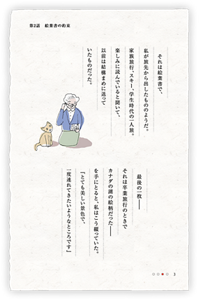 第2話　絵葉書の約束
それは絵葉書で、
私が旅先から出したもののようだ。
家族旅行、スキー、学生時代の一人旅。
楽しみに読んでいると聞いて、
以前は結構まめに送って
いたものだった。
最後の一枚――
それは卒業旅行のときで
カナダの湖の絵柄だった――
を手にとると、私はこう綴っていた。
「とても美しい景色で、
一度連れてきたいようなところです」
1